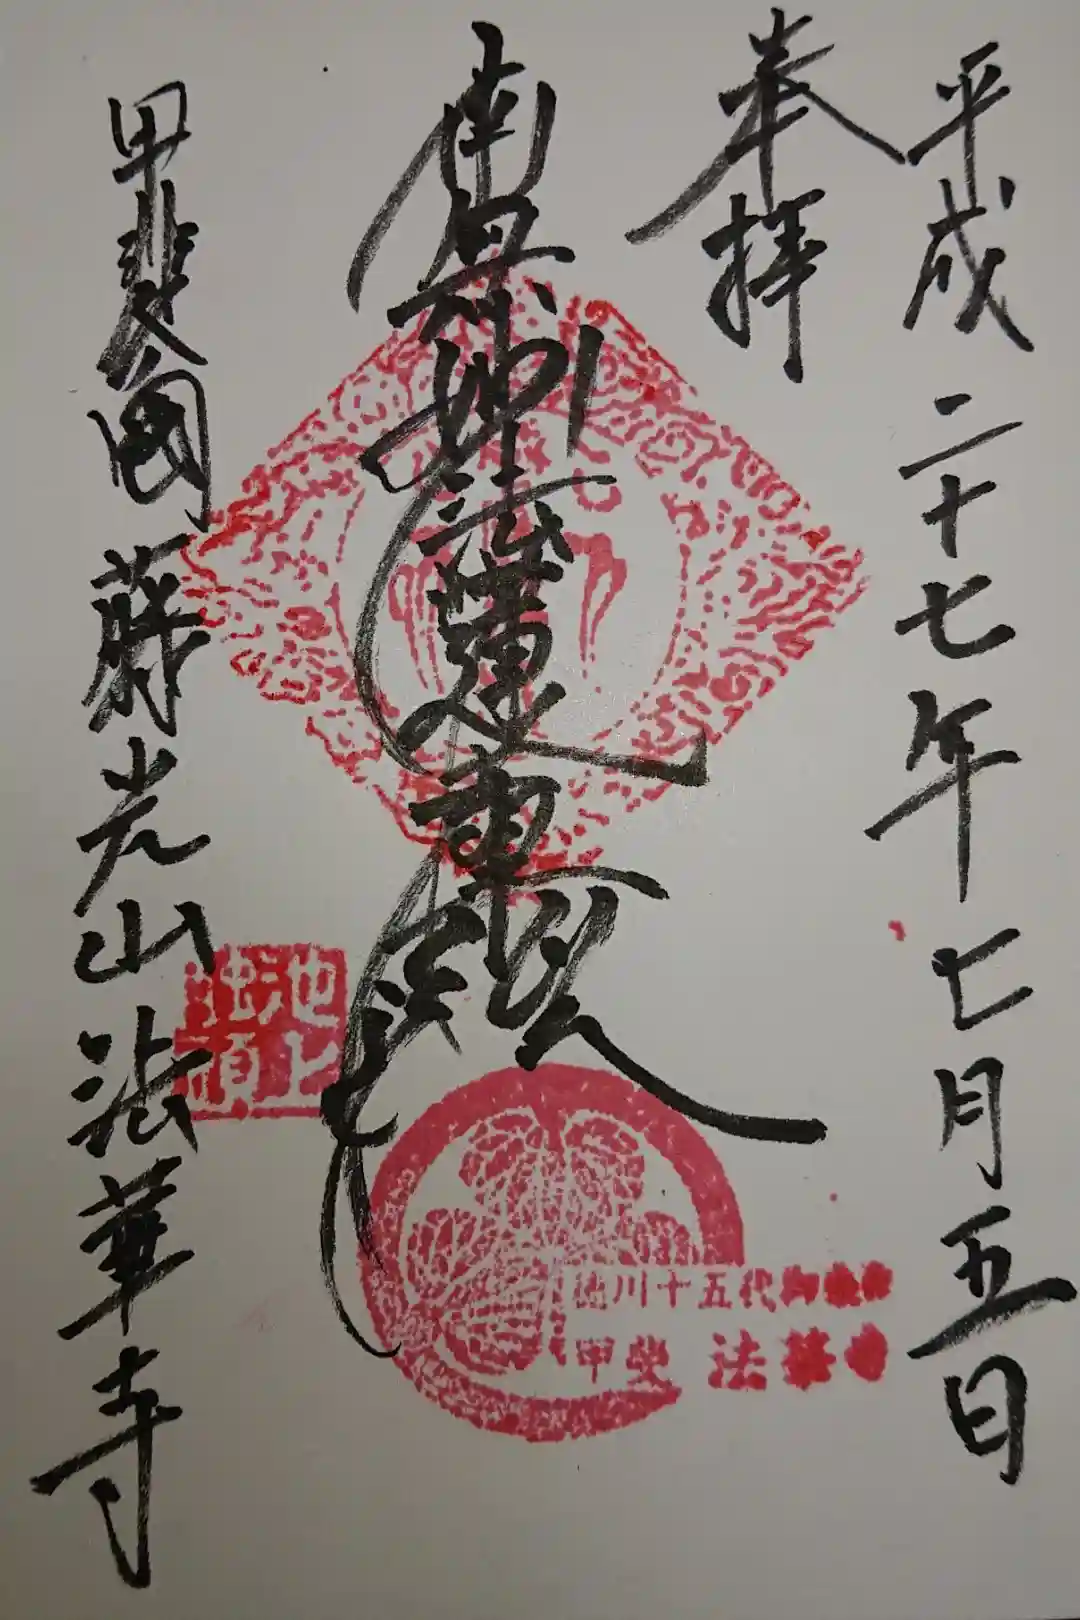 平成二十七年七月五日
奉拝
南無妙法蓮華経
甲斐國 藤光山 法華寺
池上
徳川十五代御
甲斐 法華寺